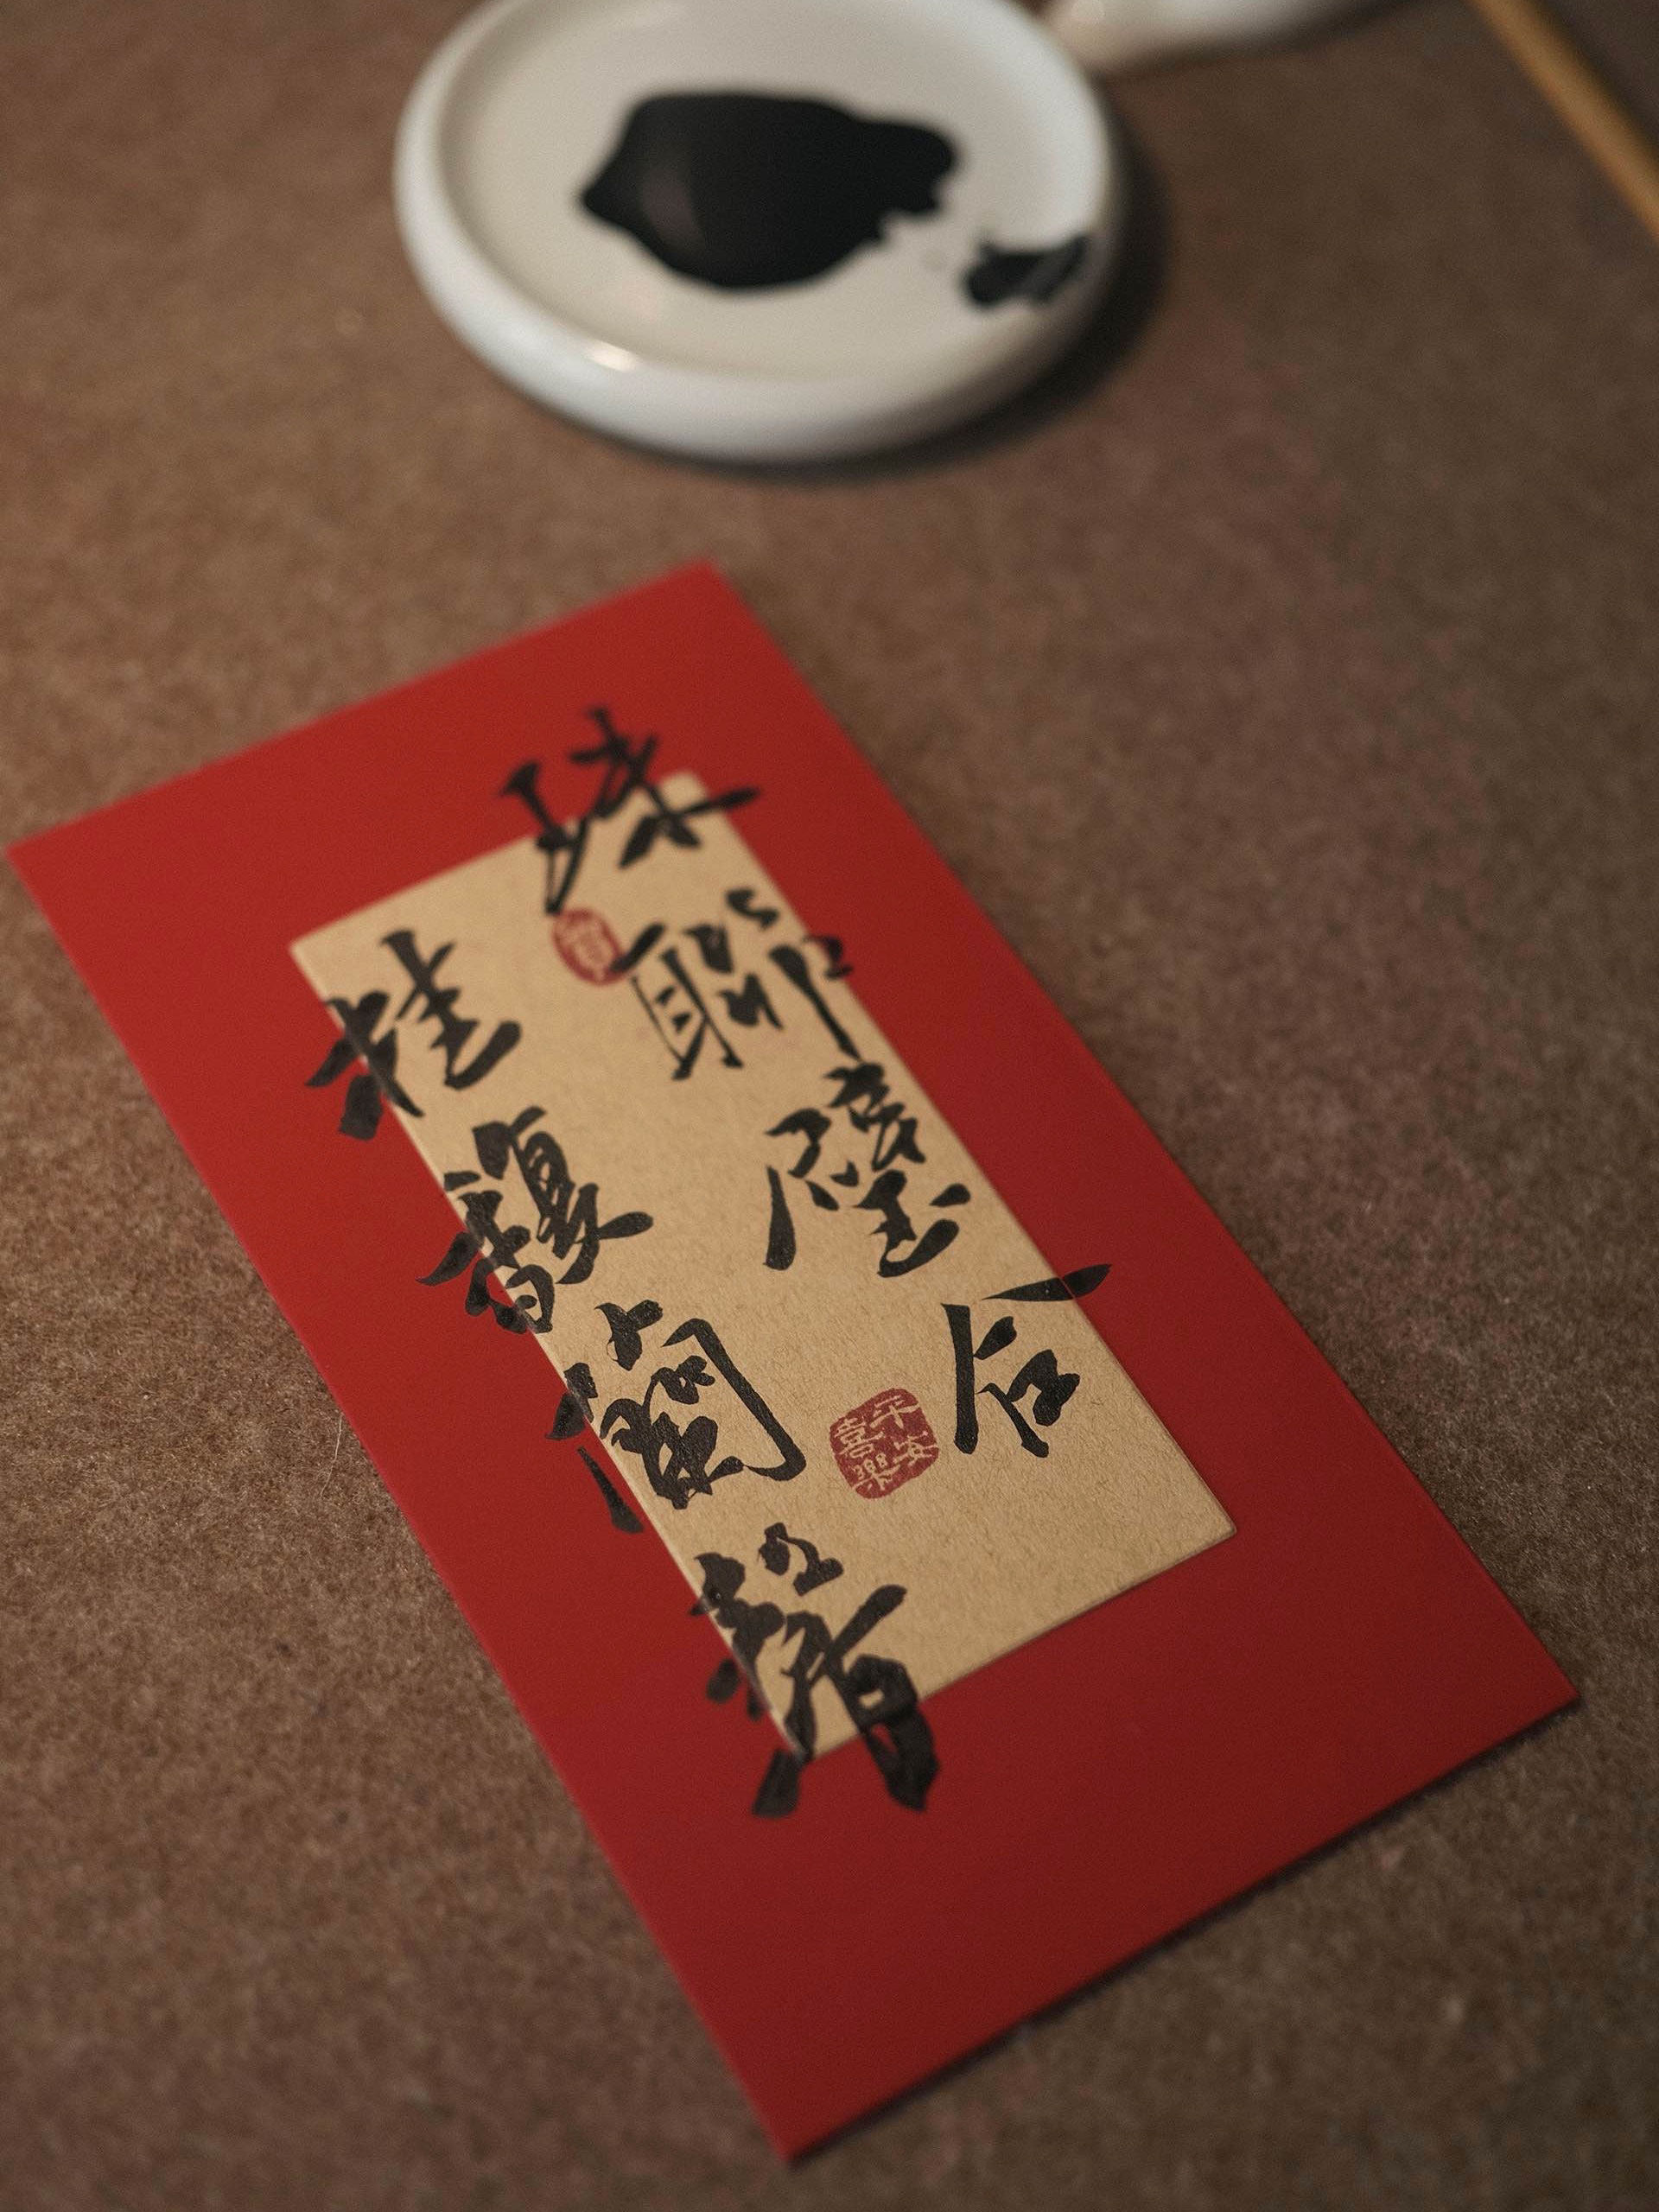 珠聯璧合
桂馥蘭馨
平安
喜樂